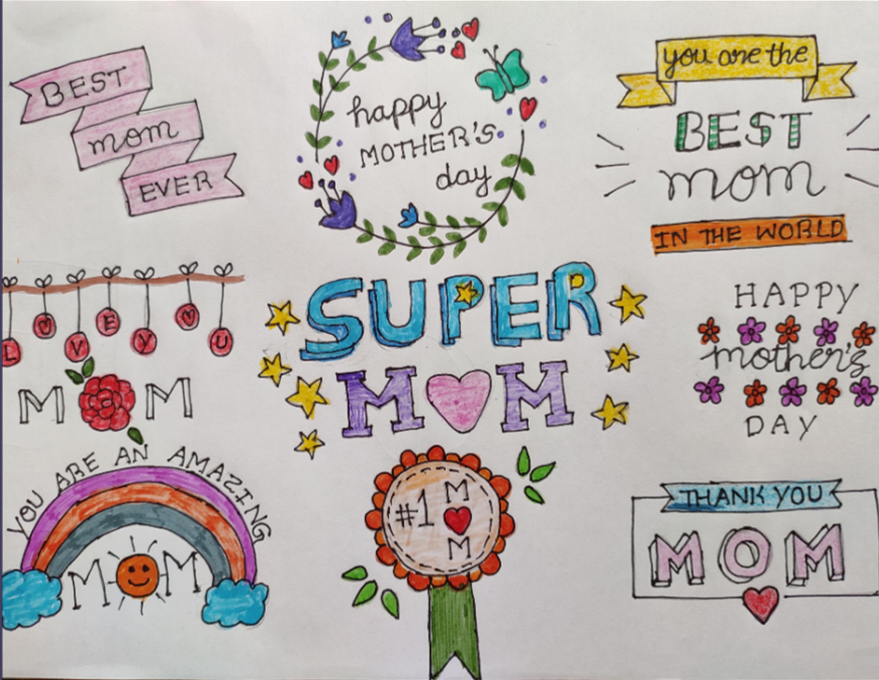 BEST
mom
EVER
happy
MOTHER'S
day
you are the
BEST
mom
IN THE WORLD
L VE Y U
M M
SUPER
M M
HAPPY
mother's
DAY
YOU ARE AN AMAZING
M M
#1 M
M
THANK YOU
MOM